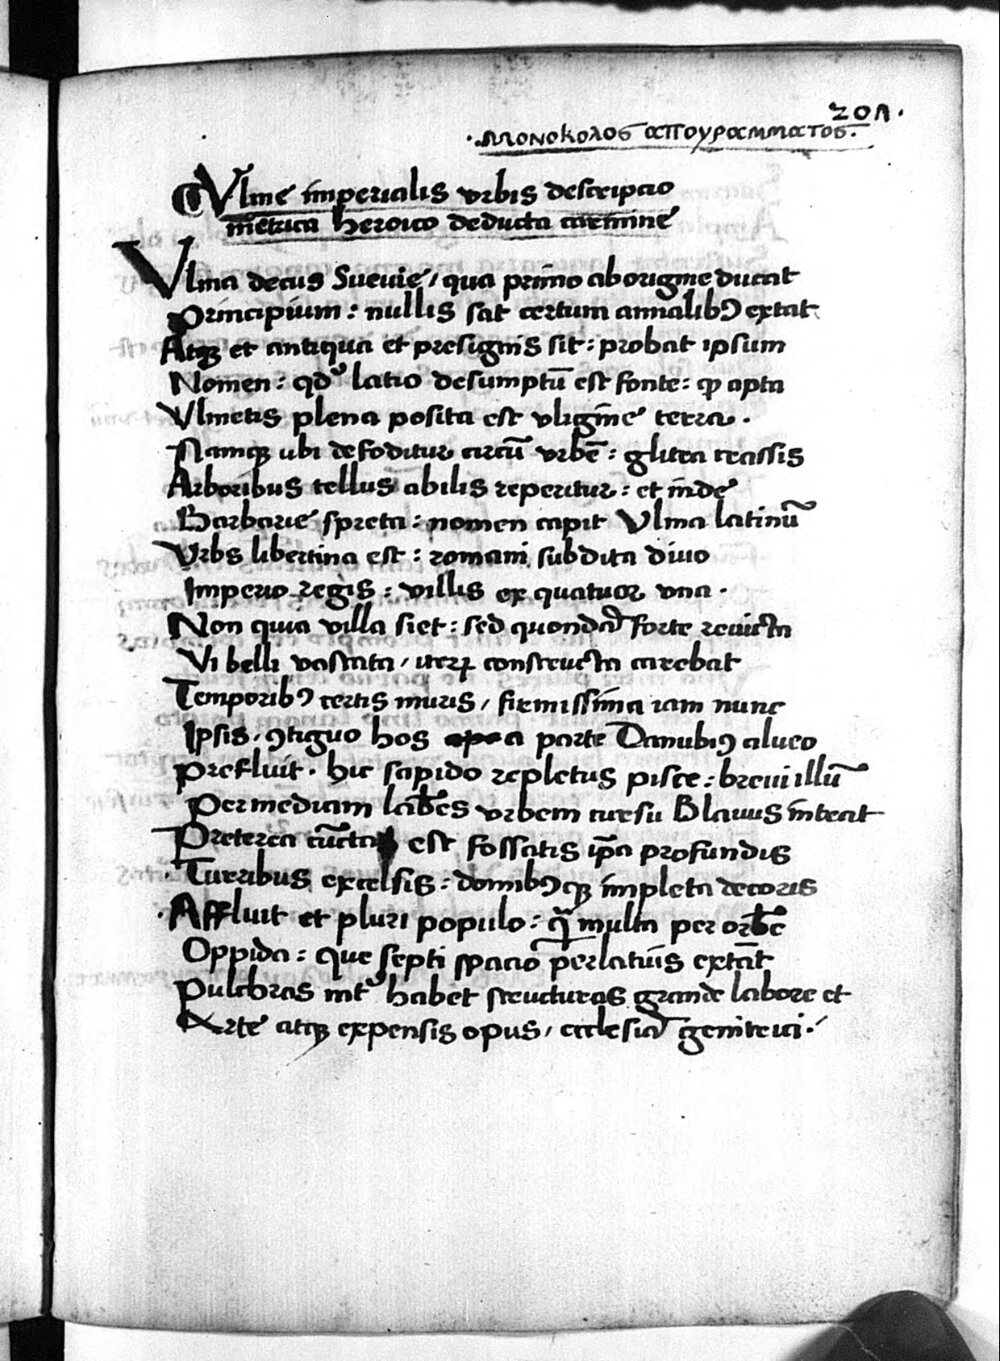 201.
·ΜΟΝΟΚΟΛΟS ΑΠΟΥΡΑΜΜΑΤΟS·
Vlme imperialis vrbis descripcio
metrica heroico deducta carmine
Vlma decus Sueuie / qua primo ab origine ducat
Principium : nullis sat certum annalibꝯ extat
Atqꝫ et antiqua et presignis sit : probat ipsum
Nomen : qd' latio desumptū est fonte : ꝙ apta
Vlmetis plena posita est vligine terra ·
Namqꝫ ubi defoditur circū vrbē : glutea crassis
Arboribus tellus abilis reperitur : et inde
Barbarie spreta : nomen capit Vlma latinū
Vrbs libertina est : romani subdita diuo
Imperio regis : villis ex quatuor vna ·
Non quia villa siet : sed quondā forte reuicta
Vi belli vastata / iteꝝ constructa carebat
Temporibꝯ certis muris / firmissima iam nunc
Ipsis / ꝯtiguo hos a parte Danubiꝯ alueo
Prefluit · hic sapido repletus pisce : breui illū
Per mediam labēs vrbem cursu Blauus intrat
Preterea cūcta est fossatis ip̄a profundis
Turribus excelsis : domibꝯqꝫ impleta decoris
Affluit et pluri populo : q̄ multa per orbē
Oppida : que septi spacio perlatius extāt
Pulchras int' habet structuras grande labore et
Arte atqꝫ expensis opus / ecclesiā genitrici ·/